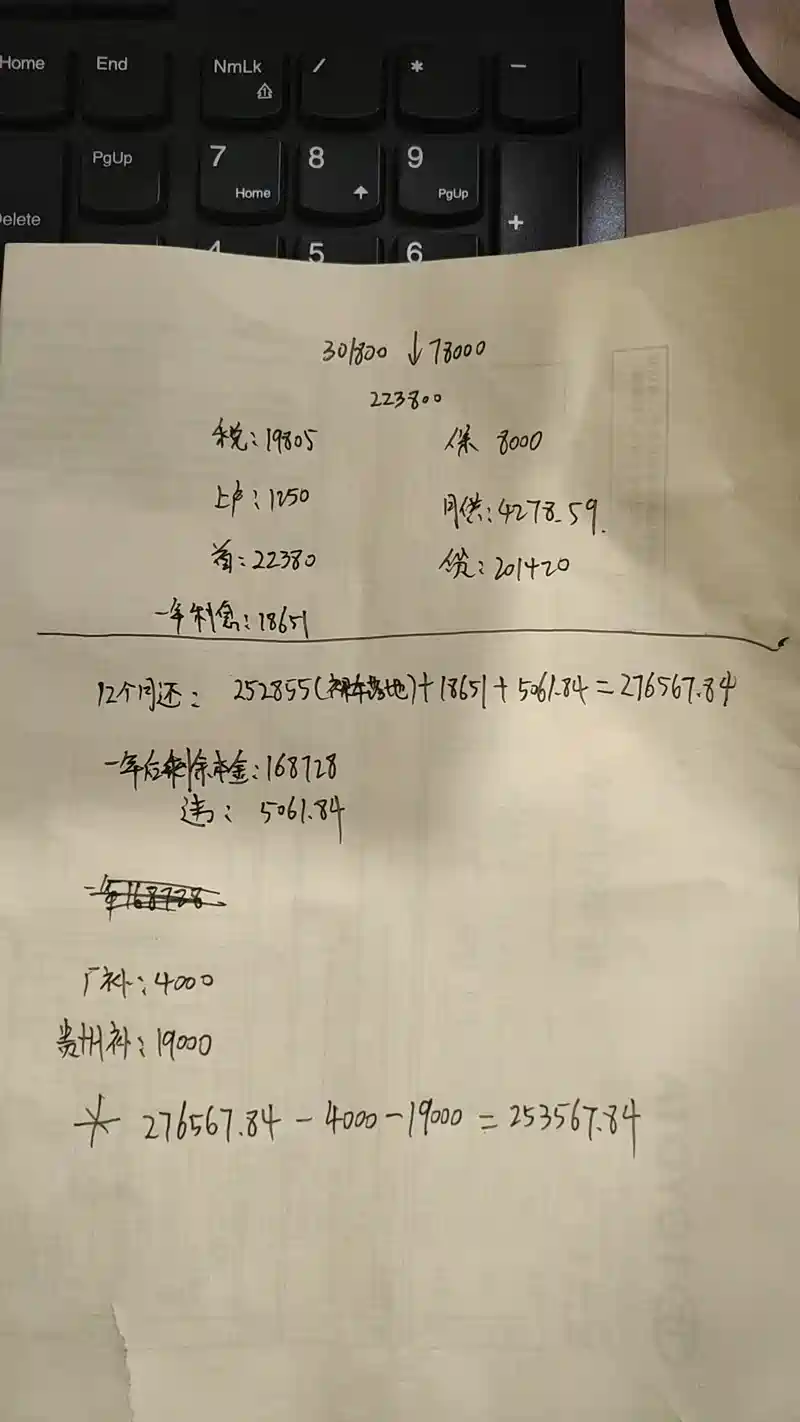 Home End NmLk / * −
PgUp 7 8 9
Home PgUp
elete +
4 5 6
301800 ↓78000
223800
税:19805 保 8000
上户:1250 月供:4278.59.
首:22380 贷:201420
一年利息:18651
12个月还: 252855(裸车落地)+18651+5061.84=276567.84
一年后剩余本金:168728
违: 5061.84
一年168728
厂补:4000
贵州补:19000
* 276567.84-4000-19000=253567.84